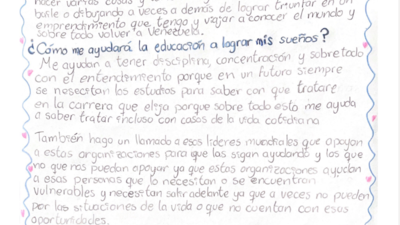 hacer varias cosas y
baile o dibujando a veces a demás de lograr triunfar en un
emprendimiento que tengo y viajar a conocer el mundo y
sobre todo volver a Venezuela.
¿Cómo me ayudará la educación a lograr mis sueños?
Me ayudan a tener disciplina, concentración y sobre todo
con el entendimiento porque en un futuro siempre
se nesecitan los estudios para saber con que tratare
en la carrera que elija porque sobre todo esto me ayuda
a saber tratar incluso con casos de la vida cotidiana
También hago un llamado a esos líderes mundiales que apoyan
a estas organizaciones para que las sigan ayudando y los que
no que nos puedan apoyar ya que estas organizaciones ayudan
a esas personas que lo necesitan o se encuentran
vulnerables y necesitan salir adelante ya que a veces no pueden
por las situaciones de la vida o que no cuentan con esas
oportunidades.